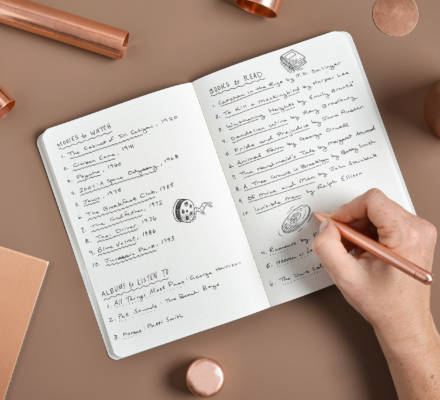 MOVIES to WATCH
1. The Cabinet of Dr. Caligari, 1920
2. Citizen Kane, 1941
3. Psycho, 1960
4. 2001: A Space Odyssey, 1968
5. Jaws, 1975
6. The Breakfast Club, 1985
7. The Godfather, 1972
8. Taxi Driver, 1976
9. Blue Velvet, 1986
10. Jurassic Park, 1993
ALBUMS to LISTEN TO
1. All Things Must Pass, George Harrison
2. Pet Sounds, The Beach Boys
3. Horses, Patti Smith
BOOKS to READ
1. Catcher in the Rye by J.D. Salinger
2. To Kill a Mockingbird by Harper Lee
3. Wuthering Heights by Emily Brontë
4. Dandelion Wine by Ray Bradbury
5. Pride and Prejudice by Jane Austen
6. Animal Farm by George Orwell
7. The Handmaid's Tale by Margaret Atwood
8. A Tree Grows in Brooklyn by Betty Smith
9. Of Mice and Men by John Steinbeck
10. Invisible Man by Ralph Ellison
4.
5.
6. The